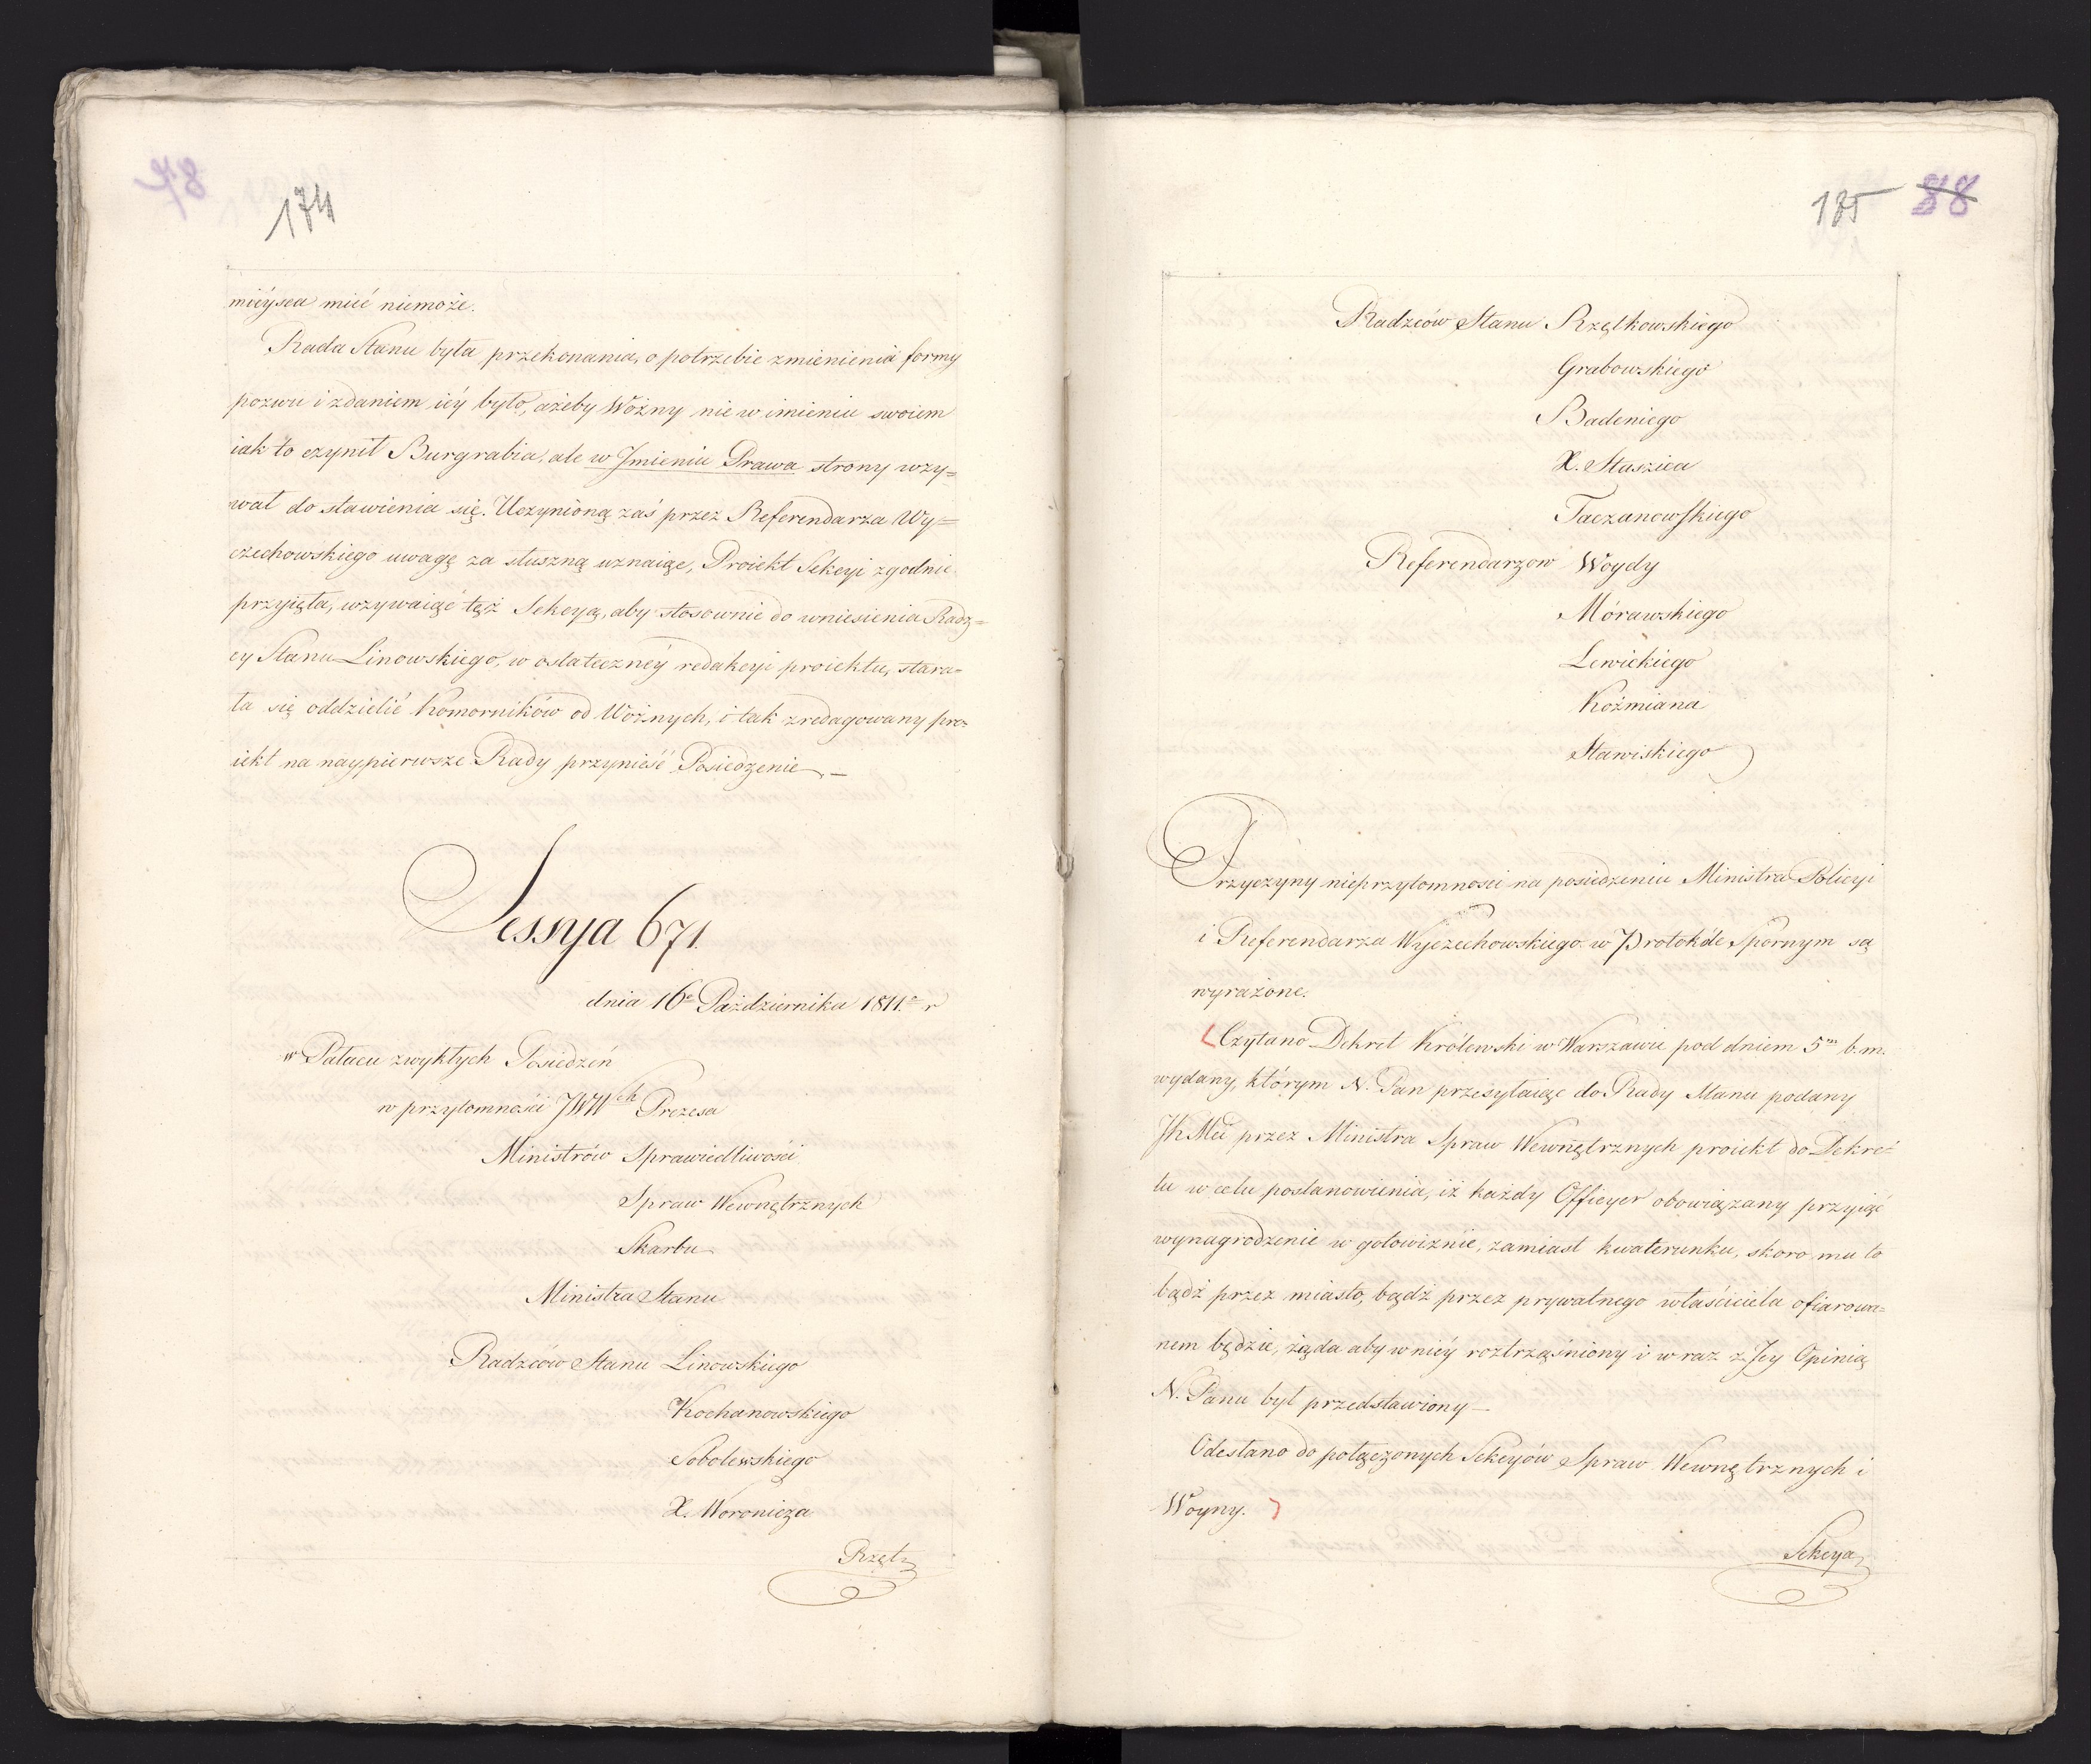 174
mieysca mieć niemoże.
Rada Stanu była przekonania, o potrzebie zmienienia formy
pozwu i zdaniem iéy było, ażeby Woźny nie w imieniu swoiem
iak to czynił Burgrabia, ale w Jmieniu Prawa strony wzy=
wał do stawienia się. Uczynioną zaś przez Referendarza Wy=
czechowskiego uwagę za słuszną uznaiąc, Proiekt Sekcyi zgodnie
przyięła, wzywaiąc też Sekcyą, aby stosownie do wniesienia Radz=
cy Stanu Linowskiego, w ostatecznéy redakcyi proiektu, stara=
ła się oddzielić Komorników od Woźnych, i tak zredagowany pro=
iekt na naypierwsze Rady przynieść Posiedzenie. —
Sessya 671.
dnia 16o Października 1811o r
w Pałacu zwykłych Posiedzeń
w przytomności JWWch Prezesa
Ministrów Sprawiedliwości
Spraw Wewnętrznych
Skarbu
Ministra Stanu
Radzców Stanu Linowskiego
Kochanowskiego
Sobolewskiego
X. Woronicza
Rzęt.
88
Radzców Stanu Rzętkowskiego
Grabowskiego
Badeniego
X. Staszica
Taczanowskiego
Referendarzow Woydy
Mórawskiego
Lewickiego
Koźmiana
Stawiskiego
Przyczyny nieprzytomności na posiedzeniu Ministra Policyi
i Referendarza Wyczechowskiego w Protokóle Spornym są
wyrażone.
Czytano Dekret Królewski w Warszawie pod dniem 5m b. m.
wydany, którym N. Pan przesyłaiąc do Rady Stanu podany
JKMci przez Ministra Spraw Wewnętrznych proiekt do Dekre=
tu w celu postanowienia, iż każdy Officyer obowiązany przyiąć
wynagrodzenie w gotowiznie, zamiast kwaterunku, skoro mu to
bądź przez miasto, bądź przez prywatnego właściciela ofiarowa=
nem będzie, żąda aby w niéy roztrząśniony i wraz z Jey Opinią
N. Panu był przedstawiony —
Odesłano do połączonych Sekcyów Spraw Wewnętrznych i
Woyny.
Sekcya